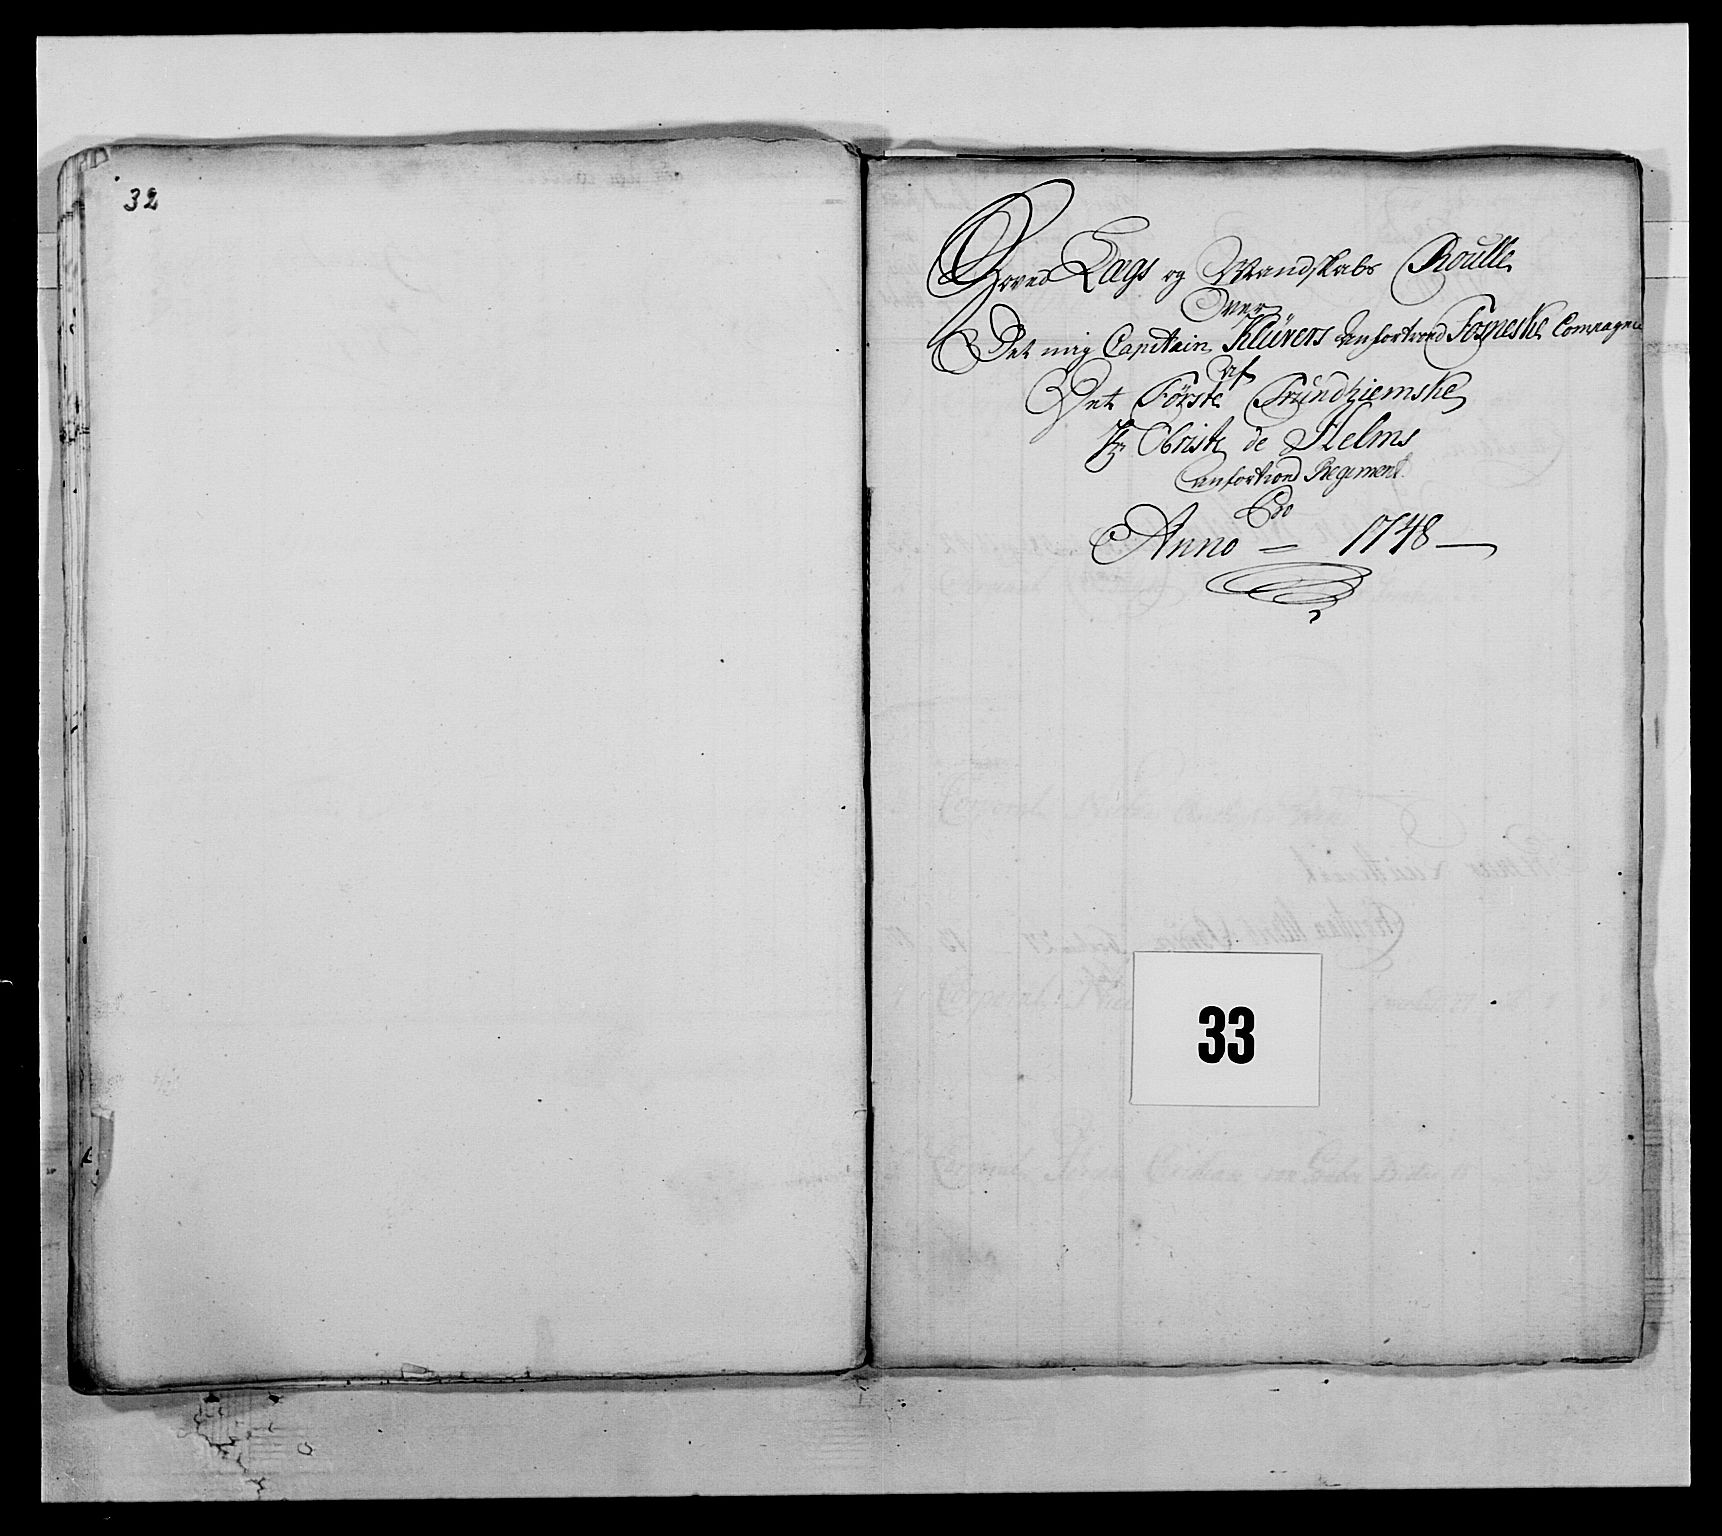 32
Hoved Lægs og Mandskabs Roulle
Over
Det mig Capitain Klüvers anfortroed Fosneske Compagnie
af
Det Förste Trundhiemske
Hr Obriste de Helms
anfortroed Regiment
Pro
Anno = 1748
33